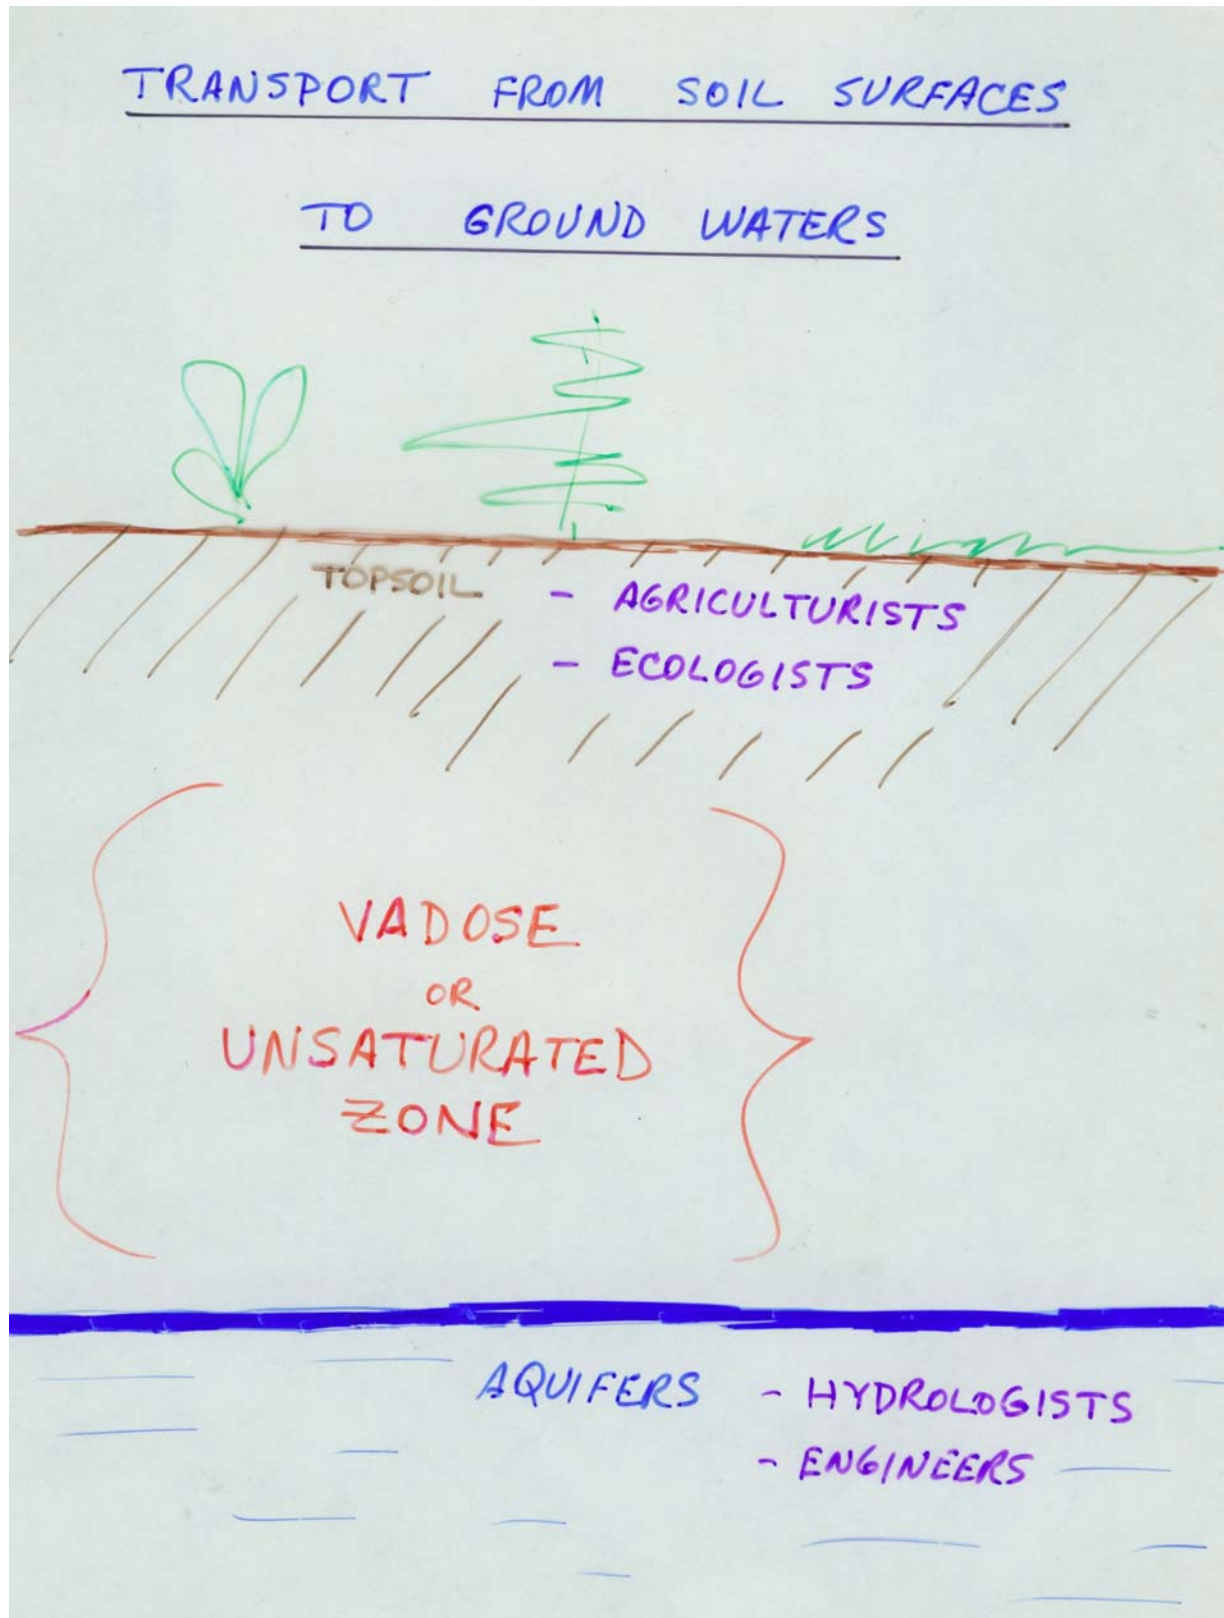 TRANSPORT FROM SOIL SURFACES
TO GROUND WATERS
TOPSOIL - AGRICULTURISTS
- ECOLOGISTS
VADOSE
OR
UNSATURATED
ZONE
AQUIFERS - HYDROLOGISTS
- ENGINEERS